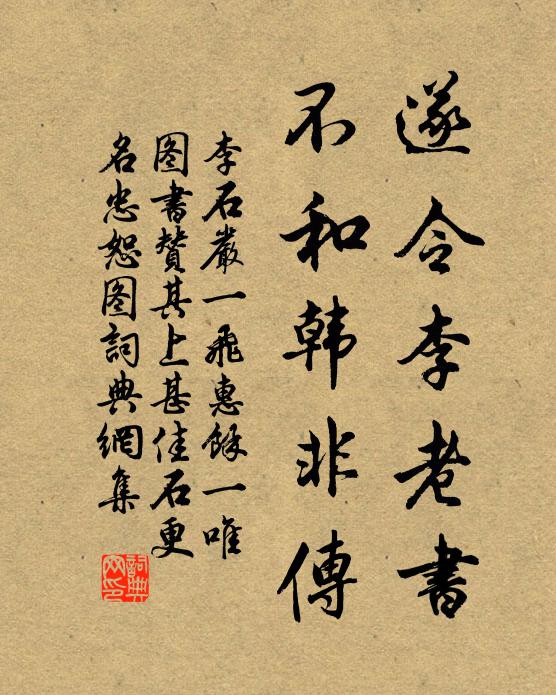 遂令李老書
不和韩非傳
李石嚴一飛惠餘一唯
图書賛其上甚佳石更
名忠恕图詞典網集
詞典
网印